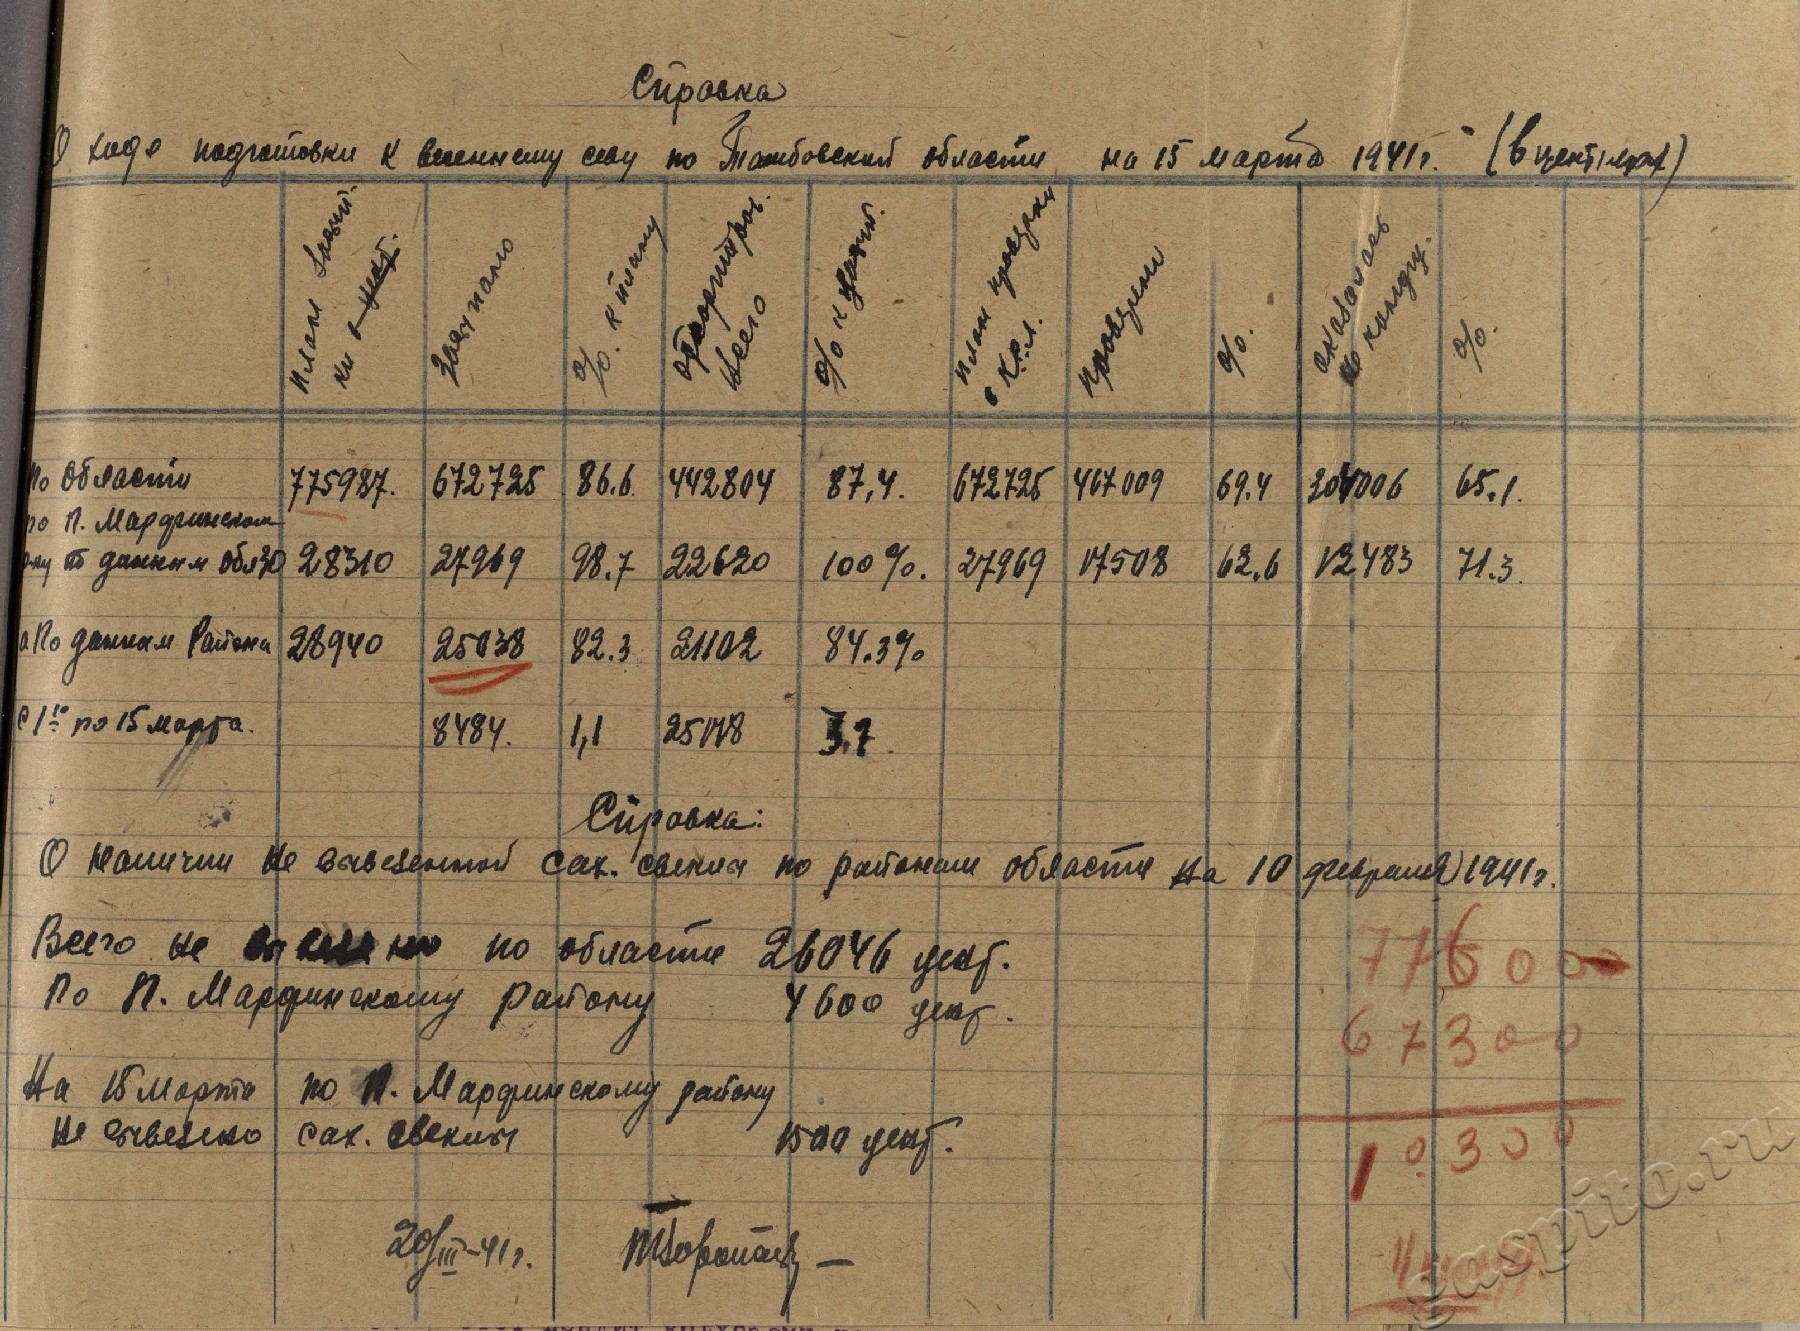 Справка
О ходе подготовки к весеннему севу по Тамбовской области на 15 марта 1941г. (в центнерах)
план засып-
ки в цент.
Засыпано
% к плану
отсортиров.
всего
% к засып.
план проверки
в К.С.Л.
Проверено
%
оказалось
не кондиц.
%
По области 775987. 672725 86.6 442804 87,4. 672725 467009 69.4 304006 65.1.
по П. Марфинском
ону по данным ОблЗО 28310 27969 98.7 22620 100%. 27969 17508 62.6 12483 71.3.
а По данным Района 28940 25038 82.3 21102 84.3%
с 1го по 15 марта. 8484. 1,1 25178 3.7.
Справка:
О наличии не вывезенной сах. свеклы по районам области на 10 февраля 1941г.
Всего не вывезено по области 26046 цент.
По П. Марфинскому району 4600 цент.
На 15 марта по П. Марфинскому району
не вывезено сах. свеклы 1500 цент.
77600
67300
10300
20/III-41г.
gaspito.ru